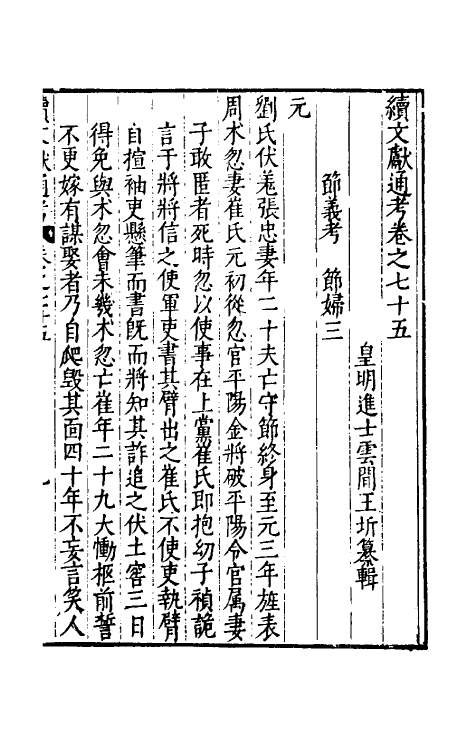 續文獻通考卷之七十五
皇明進士雲間王圻纂輯
節義考　節婦三
元
劉氏伏羗張忠妻年二十夫亡守節終身至元三年旌表
周术忽妻崔氏元初從忽官平陽金將破平陽令官属妻
子敢匿者死時忽以使事在上黨崔氏即抱幼子禎詭
言于將將信之使軍吏書其臂出之崔氏不使吏執臂
自揎袖吏懸筆而書旣而將知其詐追之伏土窖三日
得免與术忽會未幾术忽亡崔年二十九大慟柩前誓
不更嫁有謀娶者乃自爬毀其面四十年不妄言笑人
續文獻通考　卷之七十五